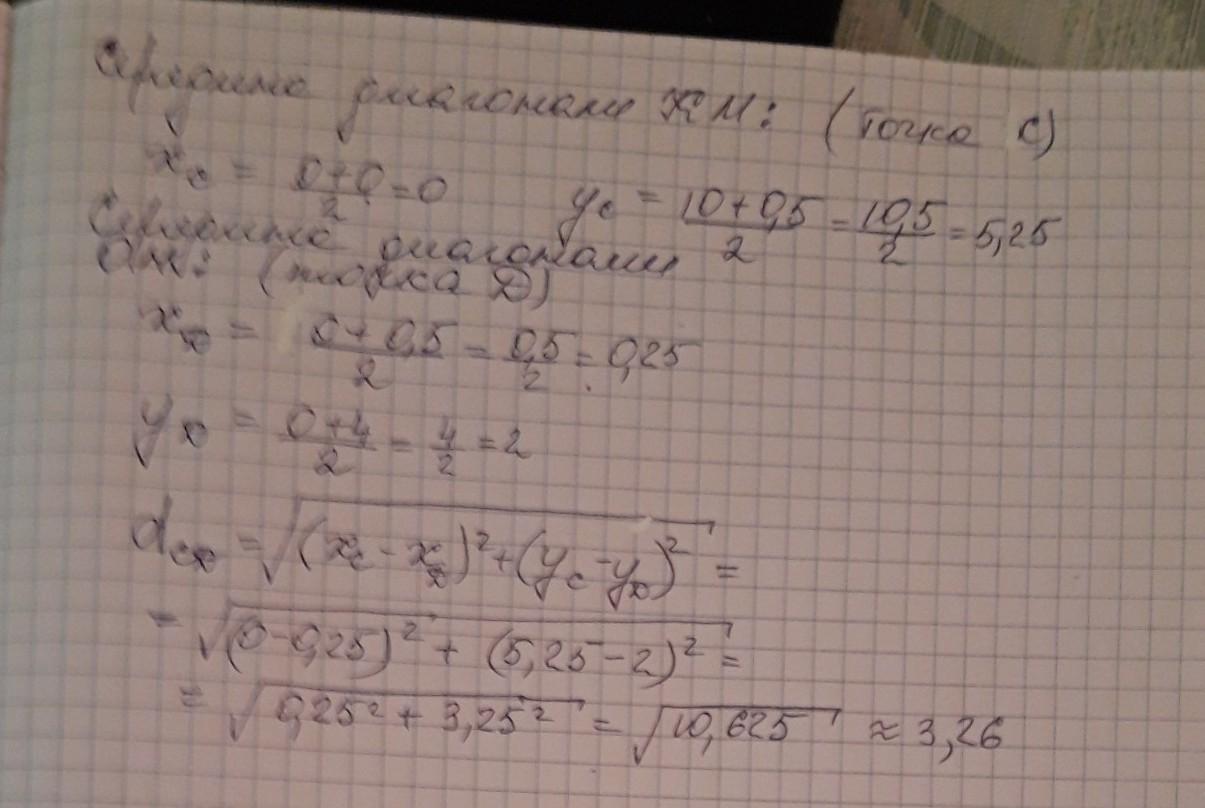 Середина диагонали КМ: (точка С)
x_c = (0+0)/2 = 0   y_c = (10+0,5)/2 = (10,5)/2 = 5,25
Середина диагонали
ОН: (точка D)
x_D = (0+0,5)/2 = (0,5)/2 = 0,25
y_D = (0+4)/2 = 4/2 = 2
d_CD = √((x_c - x_D)² + (y_c - y_D)²) =
= √((0-0,25)² + (5,25-2)²) =
= √(0,25² + 3,25²) = √(10,625) ≈ 3,26